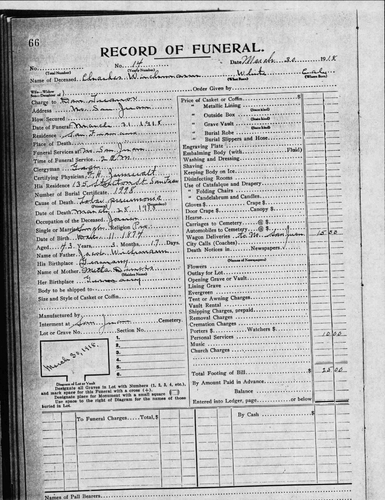 66
RECORD OF FUNERAL.
No. No. 17 Date March 30 191
(Total Number) (Yearly Number)
Name of Deceased Charles White Cal
(What Race) (Where From)
Order Given by
Charge to
Address San Juan
How Secured
Date of Funeral March 31 1918
Residence San
Place of Death
Funeral Services at San Juan
Time of Funeral Service 2 P.M.
Clergyman
Certifying Physician
His Residence 135 Stockton St San Fran
Number of Burial Certificate 1988
Cause of Death lobar pneumonia
Date of Death March 28 1918
Occupation of Deceased
Single or Married Single Religion Pro
Date of Birth 11, 1874
Aged 43 Years 5 Months 17 Days
Name of Father Jacob
His Birthplace Germany
Name of Mother Meta
Her Birthplace Germany
Body to be shipped to
Size and Style of Casket or Coffin
Manufactured by
Interment at San Juan Cemetery
Lot or Grave No. Section No.
March 30, 1918.
1
2
3
4
5
6
Diagram of Lot or Vault
Designate all Graves in Lot with Numbers (1, 2, 3, 4, etc.), and mark space for this Funeral with a cross (+).
Designate place for Monument with a small square
Use space to right of Diagram for the names of those buried in Lot.
Price of Casket or Coffin $
" Metallic Lining
" Outside Box
" Grave Vault
" Burial Robe
" Burial Slippers and Hose
Engraving Plate
Embalming Body (with Fluid)
Washing and Dressing
Shaving
Keeping Body on Ice
Disinfecting Rooms
Use of Catafalque and Drapery
" Folding Chairs
" Candelabrum and Candles
Gloves $ Crape $
Door Crape $ Canopy $
Hearse
Carriages to Cemetery @ $
Automobiles to Cemetery @ $
Wagon Deliveries San Juan 15 00
City Calls (Coaches)
Death Notices in Newspapers
Flowers
Outlay for Lot
Opening Grave or Vault
Lining Grave
Evergreen
Tent or Awning Charges
Vault Rental
Shipping Charges, prepaid
Removal Charges
Cremation Charges
Porters $ Watchers $
Personal Services 10 00
Music
Church Charges
Total Footing of Bill $ 25 00
By Amount Paid in Advance
Balance
Entered into Ledger, page or below
To Funeral Charges $
By Cash $
Names of Pall Bearers